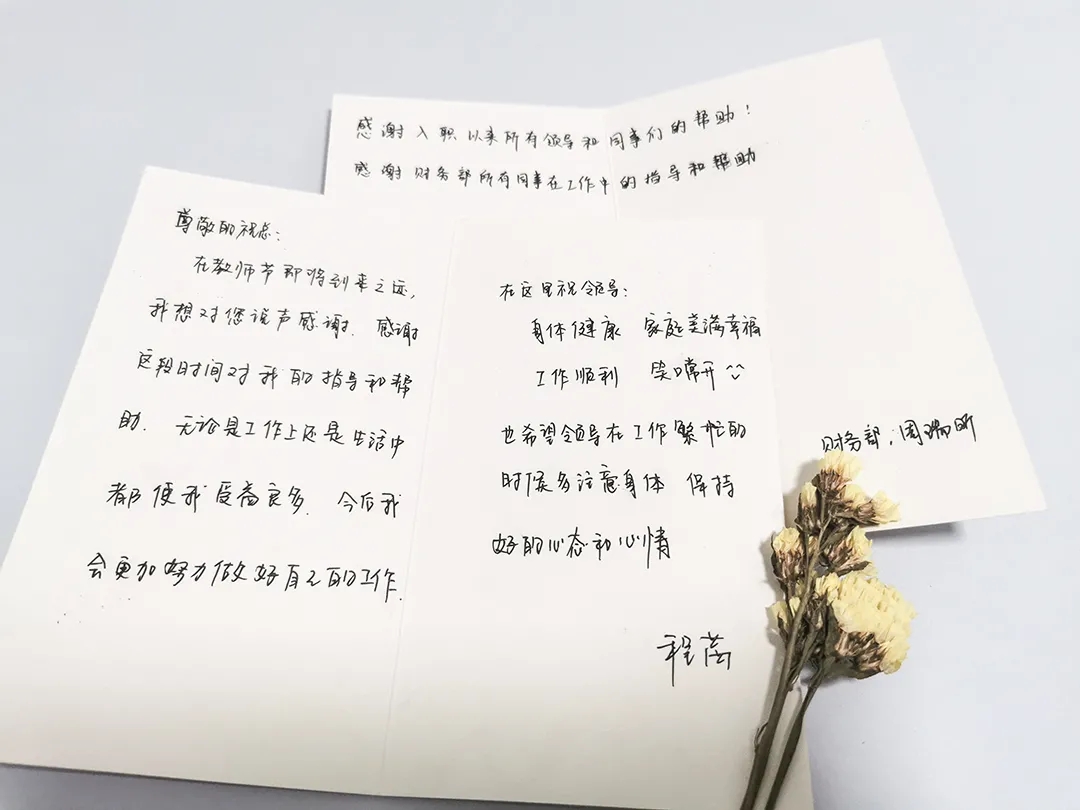 感谢入职以来所有领导和同事们的帮助！
感谢财务部所有同事在工作中的指导和帮助
财务部，周瑞昕
尊敬的祝总：
在教师节即将到来之际，
我想对您说声感谢. 感谢
这段时间对我的指导和帮
助. 无论是工作上还是生活中
都使我受益良多. 今后我
会更加努力做好自己的工作.
在这里祝领导：
身体健康 家庭美满幸福
工作顺利 笑口常开
也希望领导在工作繁忙的
时候多注意身体 保持
好的心态和心情
程